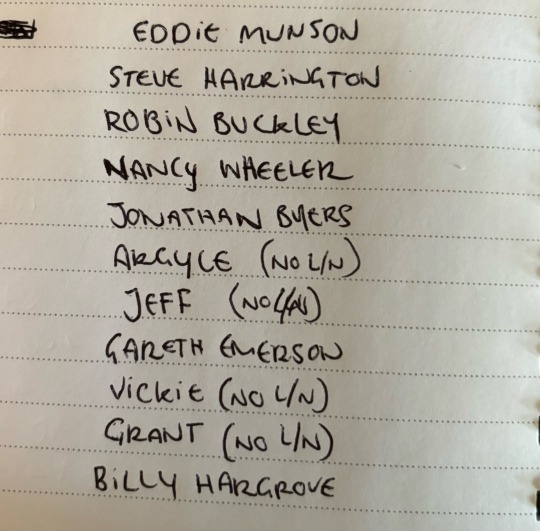 EDDIE MUNSON
STEVE HARRINGTON
ROBIN BUCKLEY
NANCY WHEELER
JONATHAN BYERS
ARGYLE (NO L/N)
JEFF (NO L/N)
GARETH EMERSON
VICKIE (NO L/N)
GRANT (NO L/N)
BILLY HARGROVE